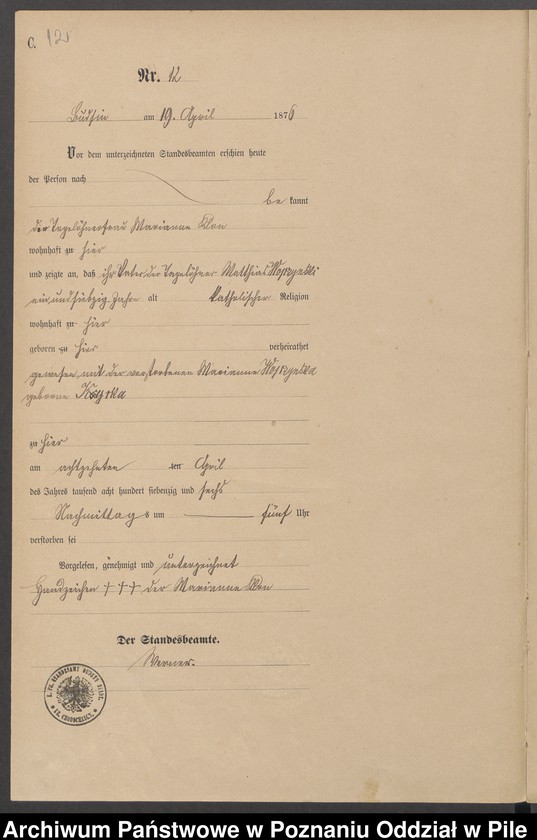 C. 12
Nr. 12
Budsin am 19. April 1876
Vor dem unterzeichneten Standesbeamten erschien heute
der Person nach
be kannt
der Tagelöhnerfrau Marianne Klon
wohnhaft zu hier
und zeigte an, daß ihr Vater der Tagelöhner Matthias
ein und siebzig Jahre alt katholischer Religion
wohnhaft zu hier
geboren zu hier verheirathet
gewesen mit der verstorbenen Marianne
geborne
zu hier
am achtzehnten ten April
des Jahres tausend acht hundert siebenzig und sechs
Nachmittag s um fünf Uhr
verstorben sei
Vorgelesen, genehmigt und unterzeichnet
Handzeichen +++ der Marianne Klon
Der Standesbeamte.
Werner.
Archiwum Państwowe w Poznaniu Oddział w Pile